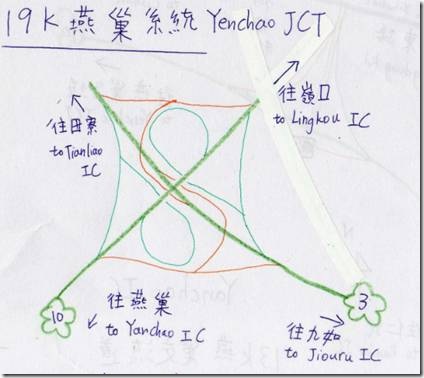 19K 燕巢系統 Yenchao JCT
往田寮
to Tianliao
IC
往嶺口
to Lingkou IC
10
往燕巢
to Yanchao IC
3
往九如
to Jiouru IC